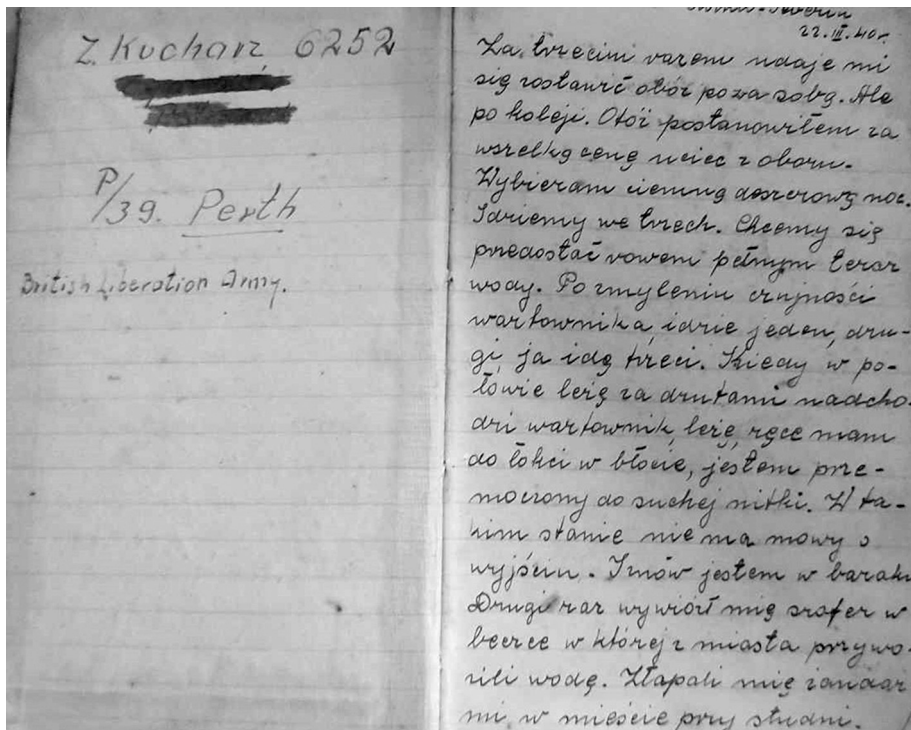 Z. Kucharz 6252
P/39. Perth
British Liberation Army.
22.III.40r.
Za trzecim razem udaje mi
się zostawić obóz poza sobą. Ale
po koleji. Otóż postanowiłem za
wszelką cenę uciec z obozu.
Wybieram ciemną deszczową noc.
Idziemy we trzech. Chcemy się
przedostać rowem pełnym teraz
wody. Po zmyleniu czujności
wartownika, idzie jeden, dru-
gi, ja idę trzeci. Kiedy w po-
łowie leżę za drutami nadcho-
dzi wartownik, leżę, ręce mam
do łokci w błocie, jestem prze-
moczony do suchej nitki. W ta-
kim stanie nie ma mowy o
wyjściu. Znów jestem w baraku
Drugi raz wywiózł mię szofer w
beczce w której z miasta przywo-
zili wodę. Złapali mię żandar
mi, w mieście przy studni.